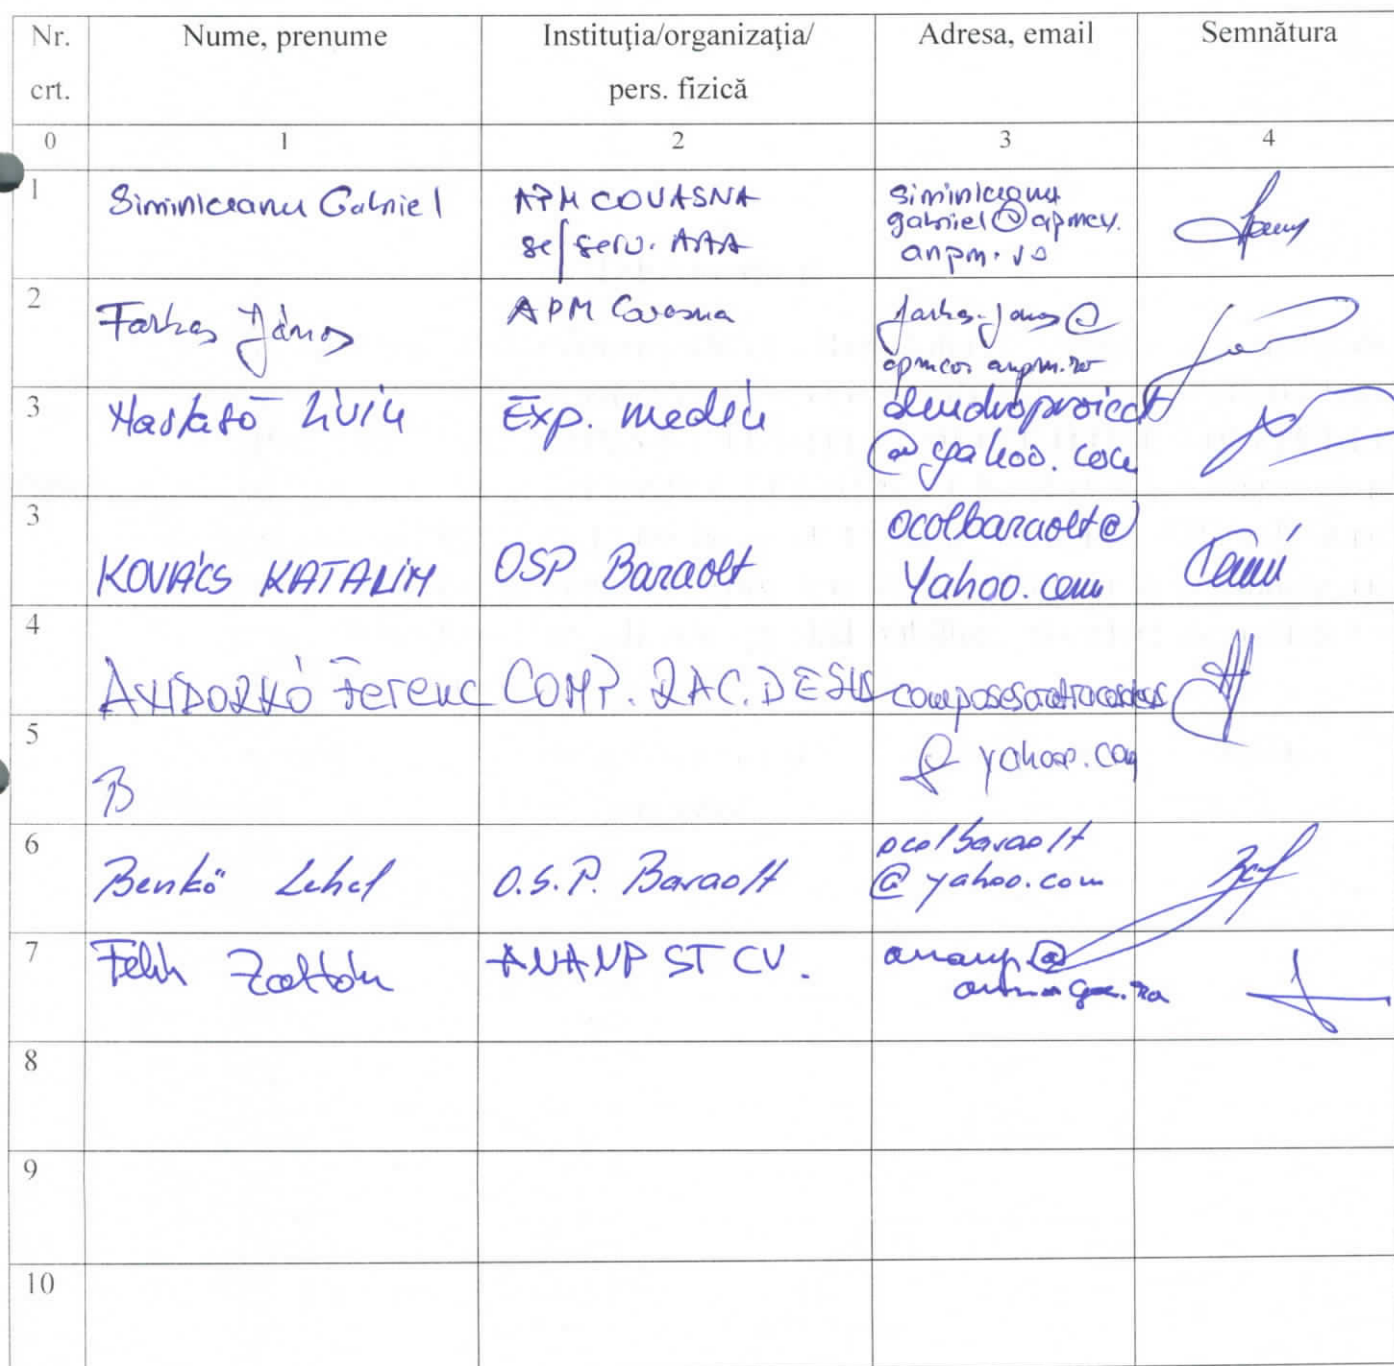 Nr. crt.
Nume, prenume
Instituţia/organizaţia/
pers. fizică
Adresa, email
Semnătura
0 1 2 3 4
1 Siminiceanu Gabriel
APM COVASNA
serv. AAA
siminiceanu
gabriel@apmcv.
anpm.ro
2 Farkas János
APM Covasna
farkas.janos@
apmcov.anpm.ro
3 Liviu
Exp. mediu
dendroproiect
@yahoo.com
3 KOVÁCS KATALIN
OSP Baraolt
ocolbaraolt@
Yahoo.com
4 Ferenc
COMP.
5 B
yahoo.com
6 Benkő Lehel
O.S.P. Baraolt
ocolbaraolt
@yahoo.com
7 Zoltán
ANANP ST CV.
8
9
10